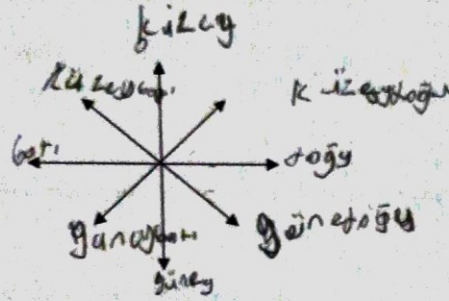 kuzey
kuzeybatı
kuzeydoğu
batı
doğu
güneybatı
günedoğu
güney